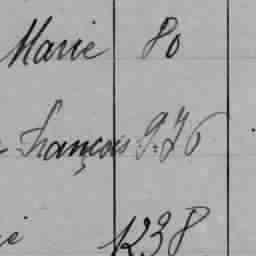 Marie 80
François 9.76
1238